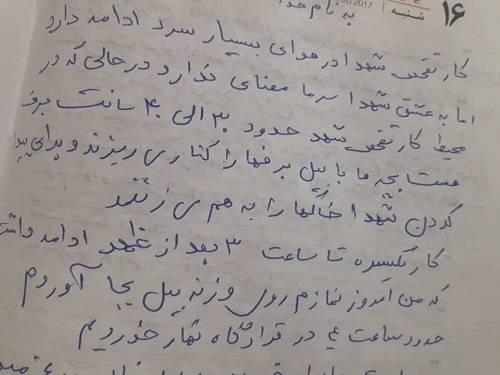 ۱۶ شنبه 2017
به نام خدا
کار تفحص شهدا در هوای بسیار سرد ادامه دارد
اما به عشق شهدا سرما معنای ندارد در حالی که در
محیط کار تفحص شهد حدود ۳۰ الی ۴۰ سانت برف
هست بچه ها با بیل برفها را کناری ریزند و برای پیدا
کردن شهدا خاکها را به هم ی زنند
کار یکسره تا ساعت ۳ بعد از ظهر ادامه داشت
که من امروز نمازم روی وزنه بیل بجا آوردم
حدود ساعت ۴ در قرارگاه نهار خوردیم